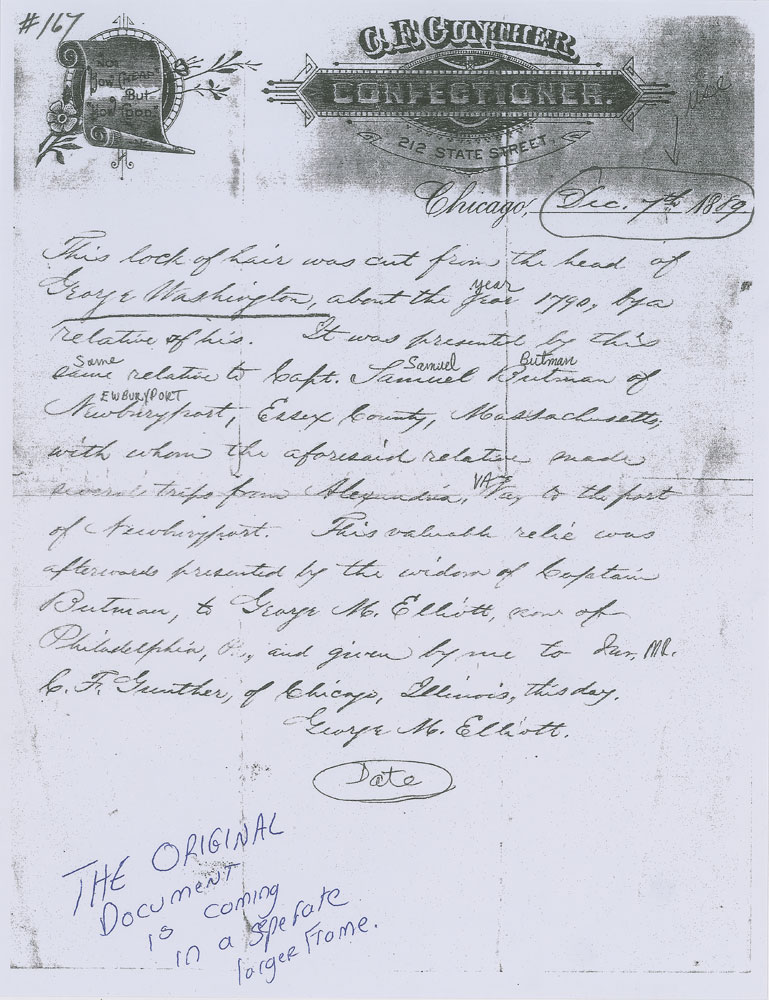 #167
Not
How Cheap
But
How Good.
C. F. GUNTHER
CONFECTIONER.
212 STATE STREET.
use
Chicago, Dec. 7th 1889
This lock of hair was cut from the head of
year
George Washington, about the year 1790, by a
relative of his. It was presented by this
Same Samuel Butman
same relative to Capt. Samuel Butman of
EWBURYPORT
Newburyport, Essex County, Massachusetts,
with whom the aforesaid relative made
VA
several trips from Alexandria, Va., to the port
of Newburyport. This valuable relic was
afterwards presented by the widow of Captain
Butman, to George M. Elliott, now of
Philadelphia, Pa., and given by me to MR.
C. F. Gunther, of Chicago, Illinois, this day.
George M. Elliott.
Date
THE ORIGINAL
Document
is coming
in a Sperate
larger Frame.